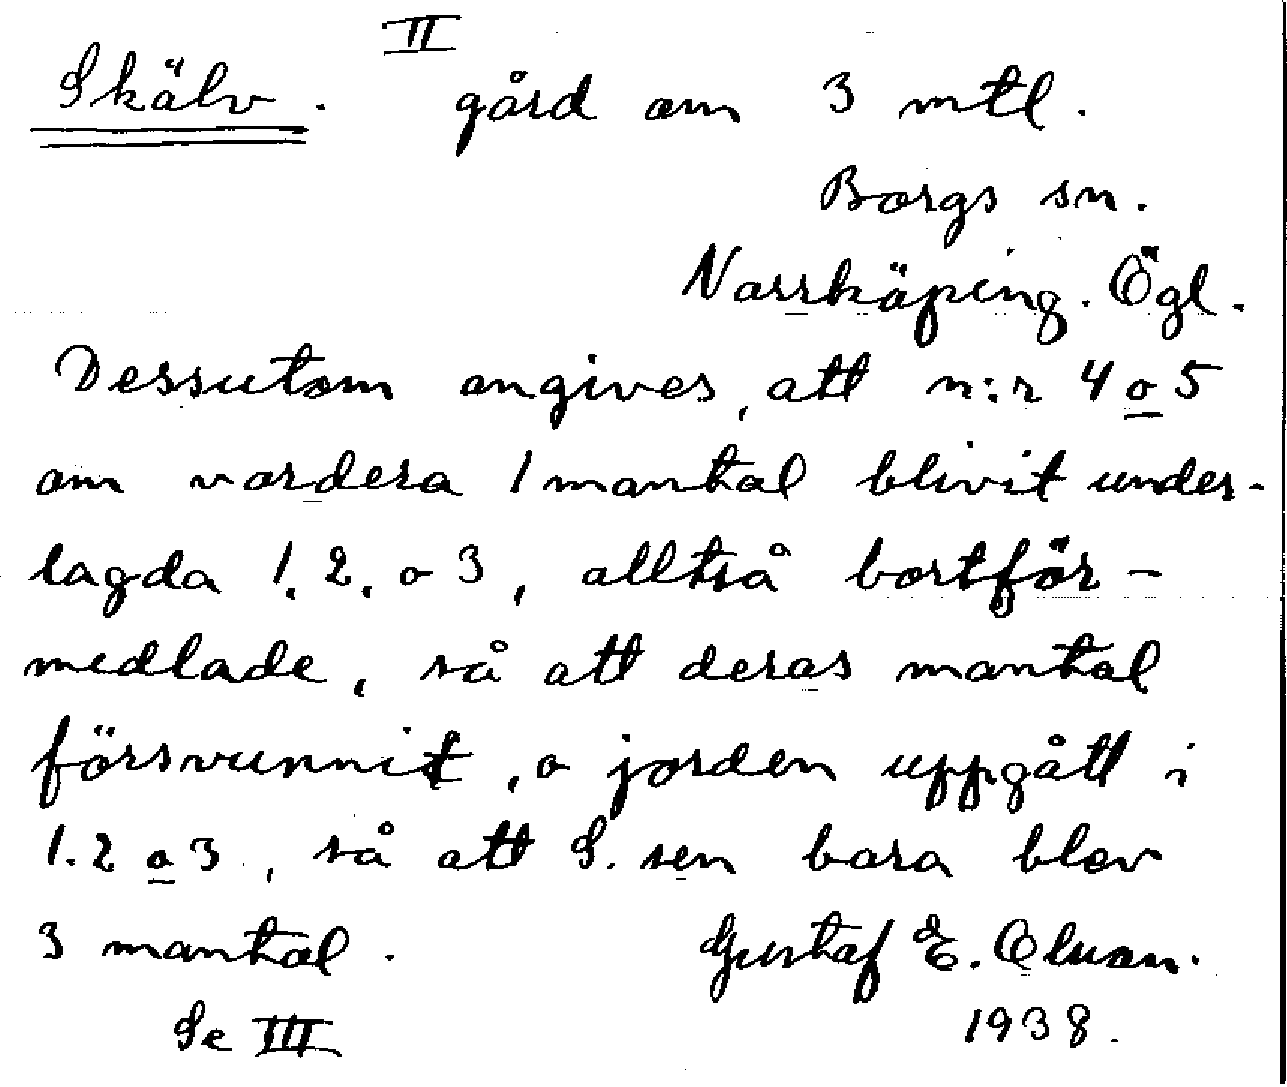 II
Skälv. gård om 3 mtl.
Borgs sn.
Norrköping. Ögl.
Dessutom angives, att n:r 4 o 5
om vardera 1 mantal blivit under-
lagda 1. 2. o 3, alltså bortför-
medlade, så att deras mantal
försvunnit, o jorden uppgått i
1. 2 o 3, så att S. sen bara blev
3 mantal.
Gustaf E.
Se III
1938.